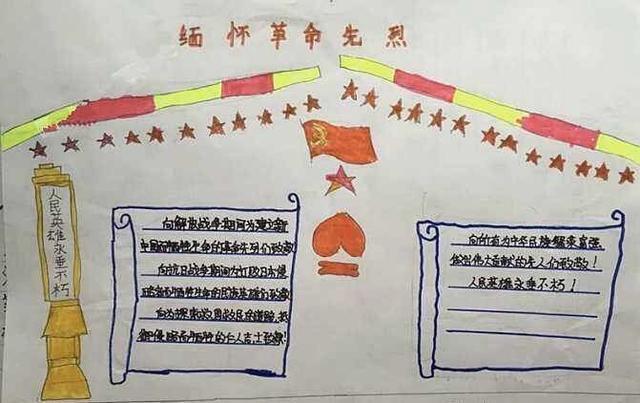 缅怀革命先烈
人民英雄永垂不朽
向解放战争期间为建立新
中国而牺牲生命的革命先烈们致敬
向抗日战争期间为打败日本侵
略者而牺牲生命的民族英雄们致敬
向为探索救国救民道路,
御侵略而牺牲的仁人志士致敬!
向所有为中华民族繁荣富强
做出伟大贡献的先人们致敬!
人民英雄永垂不朽!